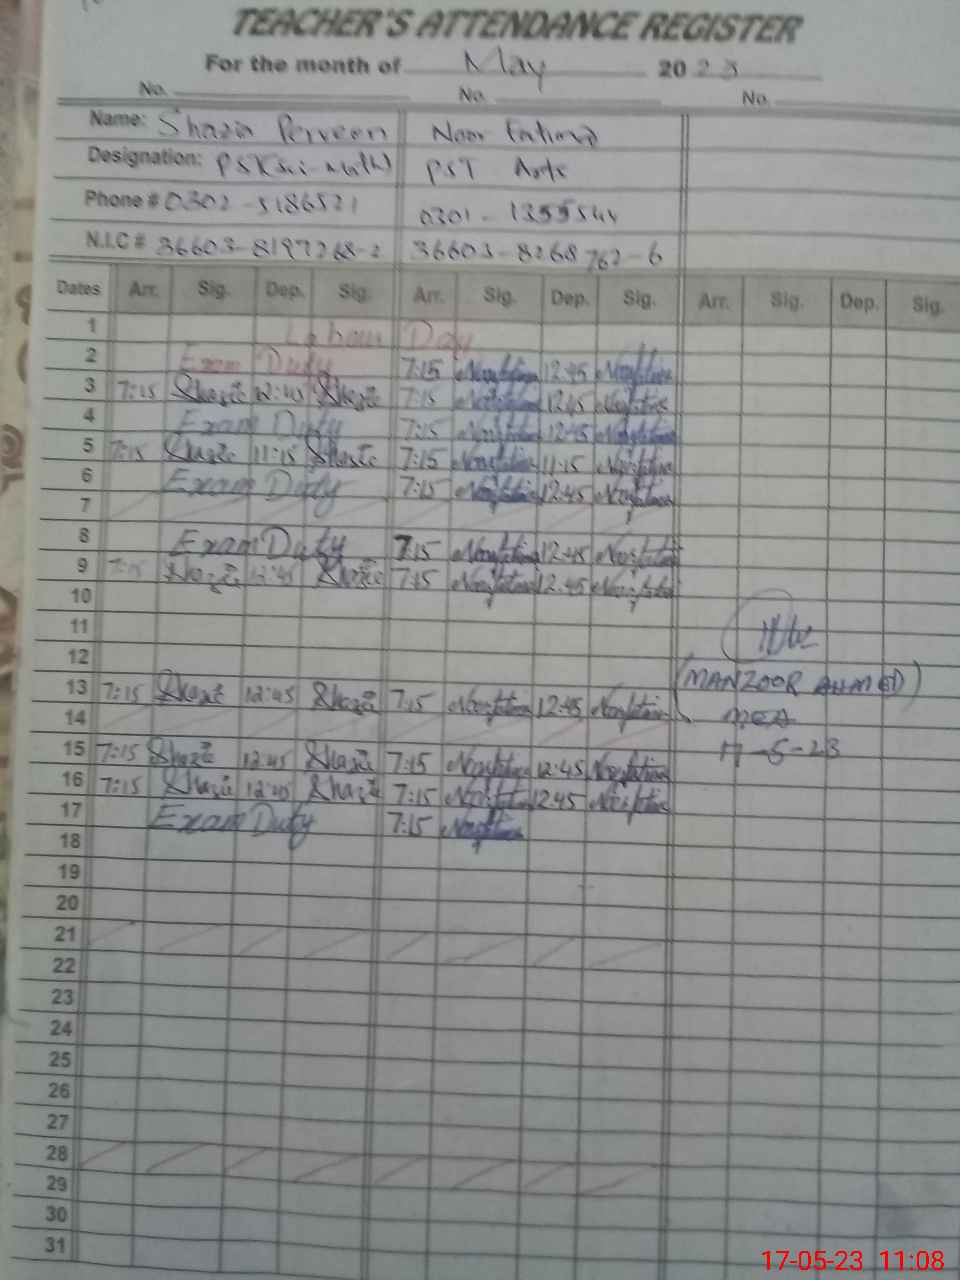 TEACHER'S ATTENDANCE REGISTER
For the month of May 2023
No. No. No.
Name: Shazia Perveen Noor Fatima
Designation: PST (Sci-math) PST Arts
Phone # 0302-5186521 0301-1355544
N.I.C # 36603-8197268-2 36603-8268762-6
Dates Arr. Sig. Dep. Sig. Arr. Sig. Dep. Sig. Arr. Sig. Dep. Sig.
1 Labour Day
2 Exam Duty 7:15 Noorfatima 12:45 Noorfatima
3 7:15 Shazia 12:45 Shazia 7:15 Noorfatima 12:45 Noorfatima
4 Exam Duty 7:15 Noorfatima 12:45 Noorfatima
5 7:15 Shazia 11:15 Shazia 7:15 Noorfatima 11:15 Noorfatima
6 Exam Duty 7:15 Noorfatima 12:45 Noorfatima
7
8 Exam Duty 7:15 Noorfatima 12:45 Noorfatima
9 7:15 Shazia 12:45 Shazia 7:15 Noorfatima 12:45 Noorfatima
10
11
12
(MANZOOR AHMED)
13 7:15 Shazia 12:45 Shazia 7:15 Noorfatima 12:45 Noorfatima
14 MEA
15 7:15 Shazia 12:45 Shazia 7:15 Noorfatima 12:45 Noorfatima 17-5-23
16 7:15 Shazia 12:45 Shazia 7:15 Noorfatima 12:45 Noorfatima
17 Exam Duty 7:15 Noorfatima
18
19
20
21
22
23
24
25
26
27
28
29
30
31
17-05-23 11:08